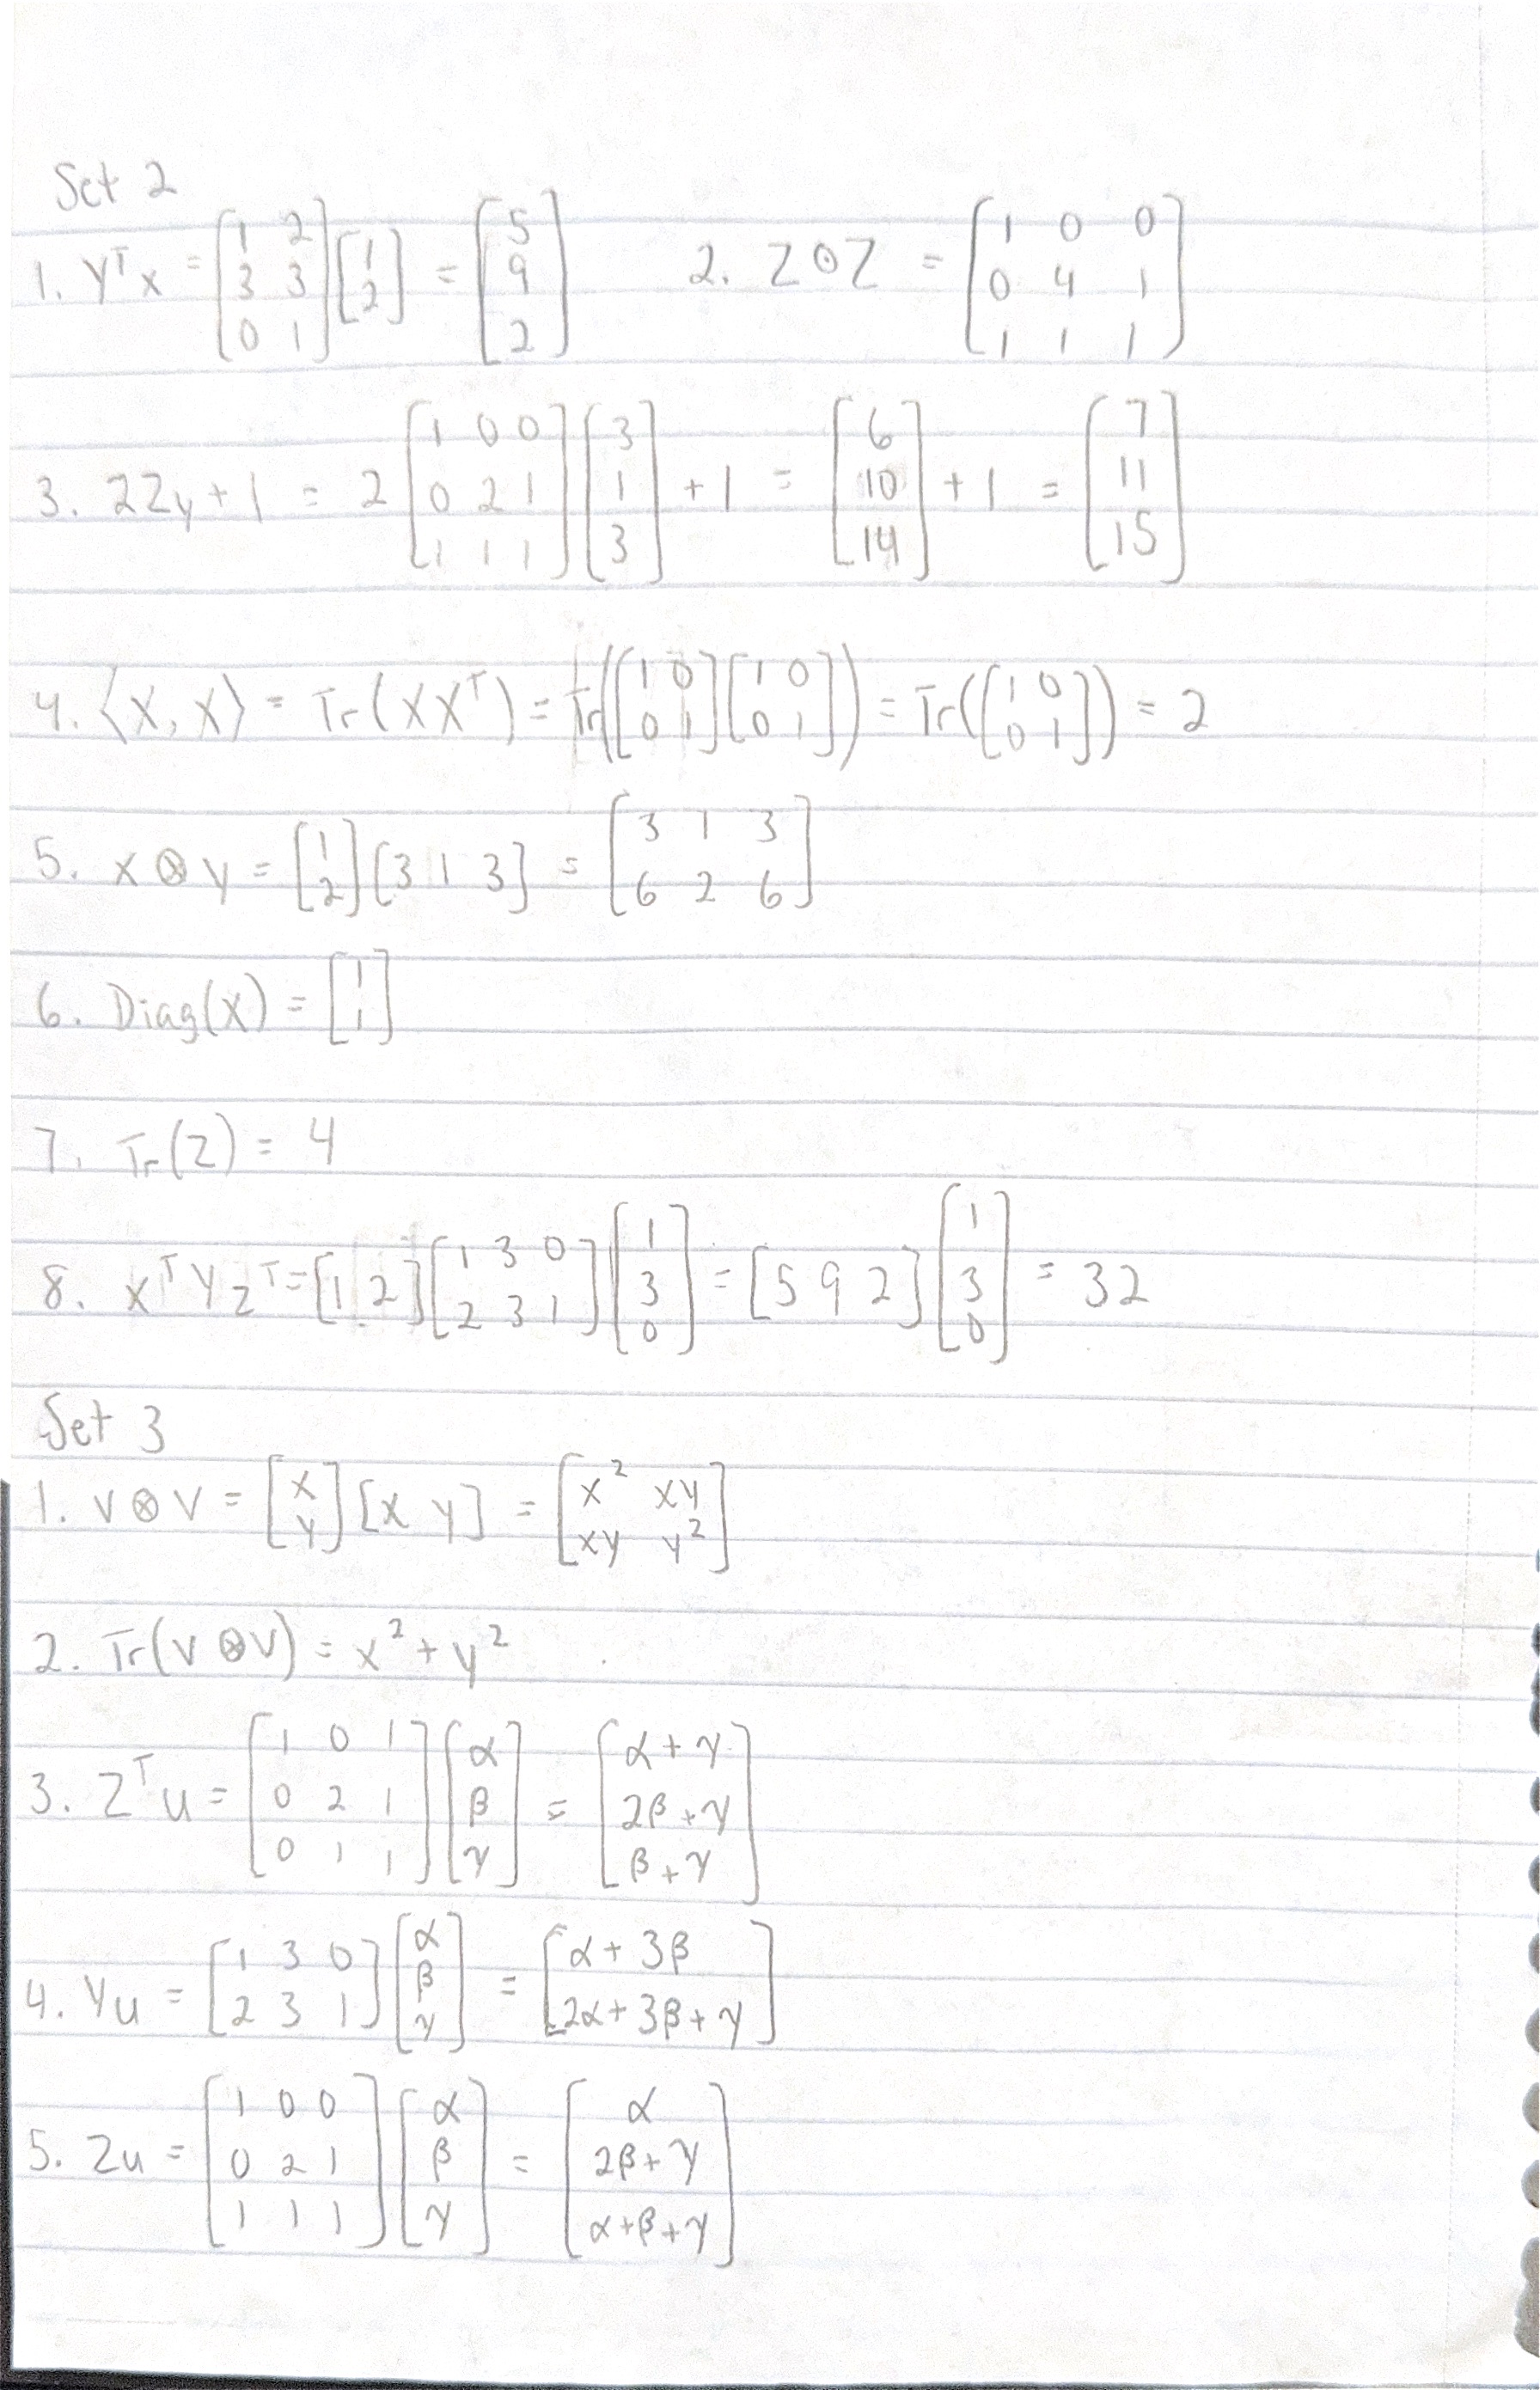 Set 2
1. Yᵀx = [1 2; 3 3; 0 1] [1; 2] = [5; 9; 2]  2. Z⊙Z = [1 0 0; 0 4 1; 1 1 1]
3. 2Zy + 1 = 2 [1 0 0; 0 2 1; 1 1 1] [3; 1; 3] + 1 = [6; 10; 14] + 1 = [7; 11; 15]
4. ⟨X, X⟩ = Tr(XXᵀ) = Tr([1 0; 0 1] [1 0; 0 1]) = Tr([1 0; 0 1]) = 2
5. x ⊗ y = [1; 2] [3 1 3] = [3 1 3; 6 2 6]
6. Diag(X) = [1; 1]
7. Tr(Z) = 4
8. xᵀYzᵀ = [1 2] [1 3 0; 2 3 1] [1; 3; 0] = [5 9 2] [1; 3; 0] = 32
Set 3
1. v ⊗ v = [x; y] [x y] = [x² xy; xy y²]
2. Tr(v ⊗ v) = x² + y²
3. Zᵀu = [1 0 1; 0 2 1; 0 1 1] [α; β; γ] = [α + γ; 2β + γ; β + γ]
4. Yu = [1 3 0; 2 3 1] [α; β; γ] = [α + 3β; 2α + 3β + γ]
5. Zu = [1 0 0; 0 2 1; 1 1 1] [α; β; γ] = [α; 2β + γ; α + β + γ]